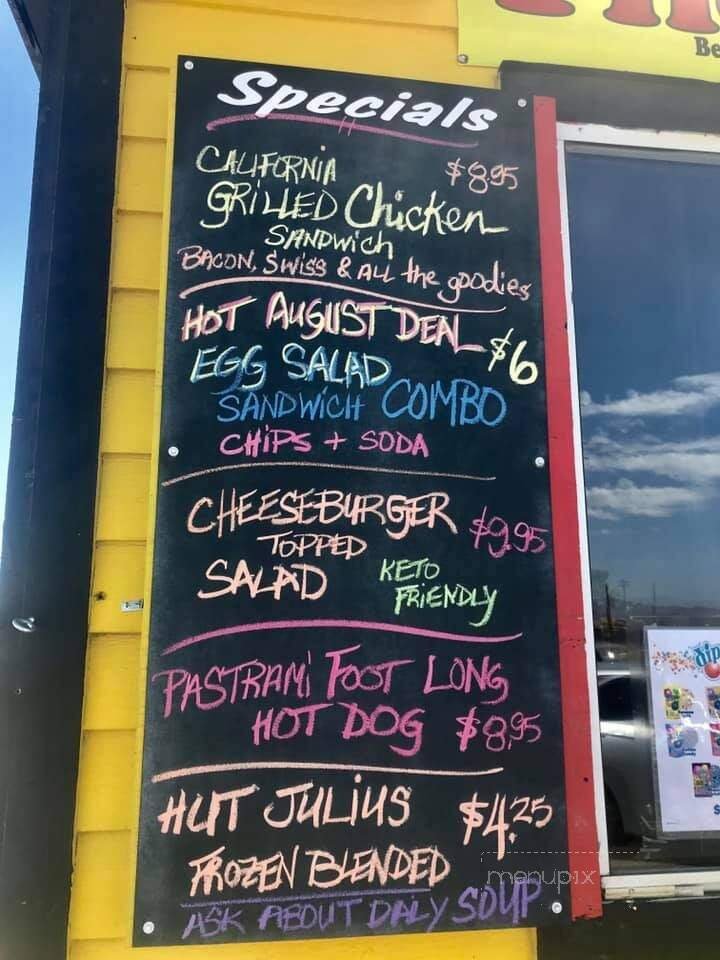 Be
Specials
CALIFORNIA $8.95
GRILLED Chicken
SANDWich
BACON, SWISS & ALL the goodies
HOT AUGUST DEAL $6
EGG SALAD
SANDWICH COMBO
CHIPS + SODA
CHEESEBURGER $9.95
TOPPED
SALAD KETO
FRIENDLY
PASTRAMI FOOT LONG
HOT DOG $8.95
HUT JULIUS $4.25
FROZEN BLENDED
menupix
ASK ABOUT DALY SOUP
dip